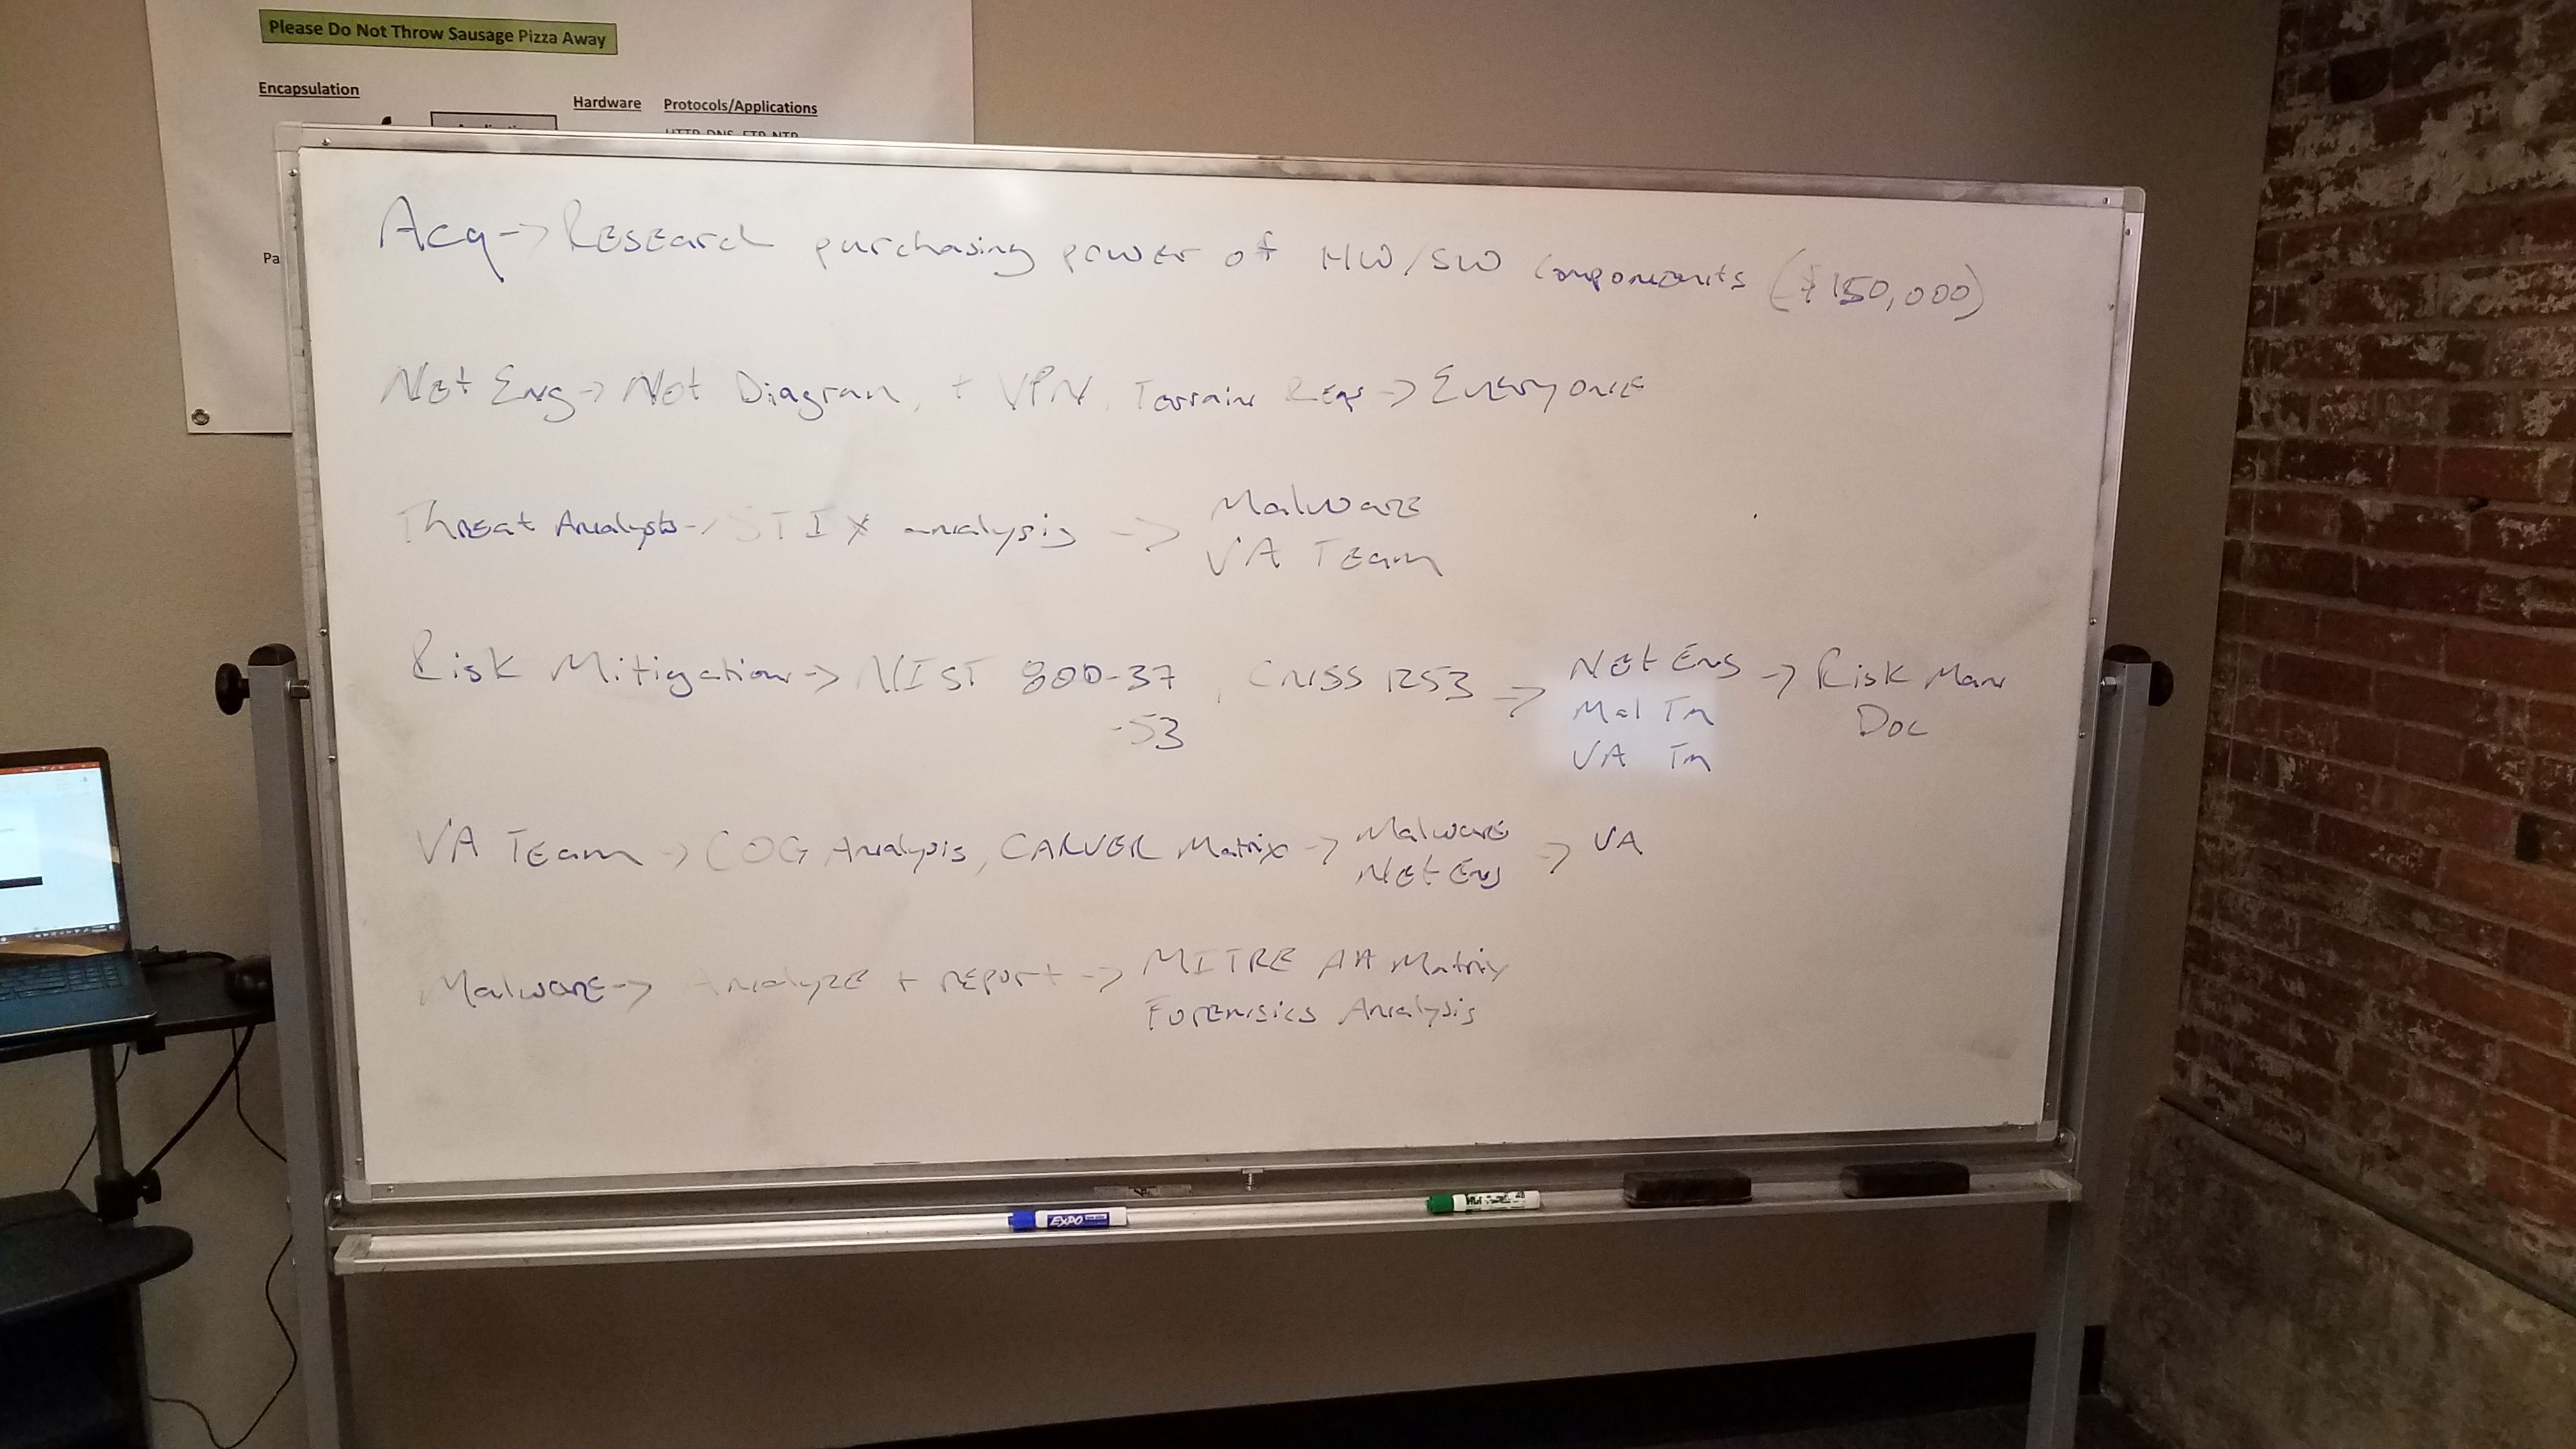 Please Do Not Throw Sausage Pizza Away
Encapsulation
Hardware Protocols/Applications
HTTP, DNS, FTP, NTP
Pa
Acq -> Research purchasing power of HW/SW components ($150,000)
Net Eng -> Net Diagram, + VPN, Terrain Reqs -> Everyone
Threat Analysts -> STIX analysis -> Malware
VA Team
Risk Mitigation -> NIST 800-37, CNSS 1253 -> Net Eng -> Risk Man
-53
Mal Tm
Doc
VA Tm
VA Team -> COG Analysis, CARVER Matrix -> Malware -> VA
Net Eng
Malware -> Analyze + report -> MITRE Att Matrix
Forensics Analysis
EXPO